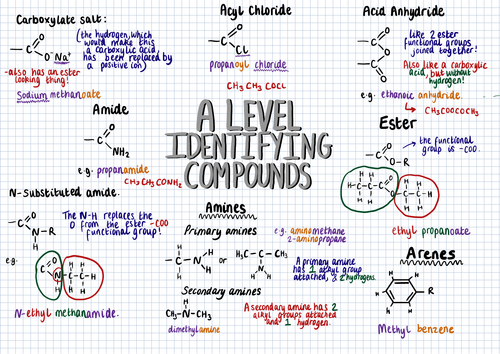 Carboxylate salt:
(the hydrogen, which
would make this
a carboxylic acid,
has been replaced by
a positive ion)
C
O
O⁻Na⁺
-also has an ester
looking thing!
Sodium methanoate
Acyl Chloride
C
O
Cl
propanoyl chloride
CH₃CH₂COCl
Acid Anhydride
C
O
O
C
O
like 2 ester
functional groups
joined together!
Also like a carboxylic
acid, but without
hydrogen!
e.g. ethanoic anhydride
CH₃COOCOCH₃
Amide
C
O
NH₂
e.g. propanamide
CH₃CH₂CONH₂
A LEVEL
IDENTIFYING
COMPOUNDS
Ester
C
O
O-R
the functional
group is -COO.
H-C-C-C
O
O-C-C-H
ethyl propanoate
N-Substituted amide.
C
O
N-R
H
The N-H replaces the
O from the ester -COO
functional group!
eg.
C
O
H
N-C-C-H
N-ethyl methanamide.
Amines
Primary amines
e.g. aminomethane
2-aminopropane
H-C-N-H
or
H₃C-C-CH₃
A primary amine
has 1 alkyl group
attached, 2 hydrogens.
Secondary amines
CH₃-N-CH₃
H
dimethylamine
A secondary amine has 2
alkyl groups attached
and 1 hydrogen.
Arenes
H
H
H
R
H
H
Methyl benzene